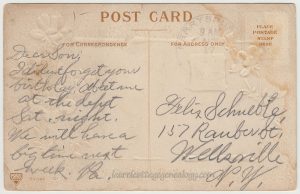 POST CARD
8 AM
PLACE
POSTAGE
STAMP
HERE
FOR CORRESPONDENCE
FOR ADDRESS ONLY
Dear Son,
I didn't forget your
birthday. Meet me
at the depot
Sat. night.
We will have a
big time next
week. Pa.
Felix Schueble,
157 Rauber St,
Wellsville
N.Y.